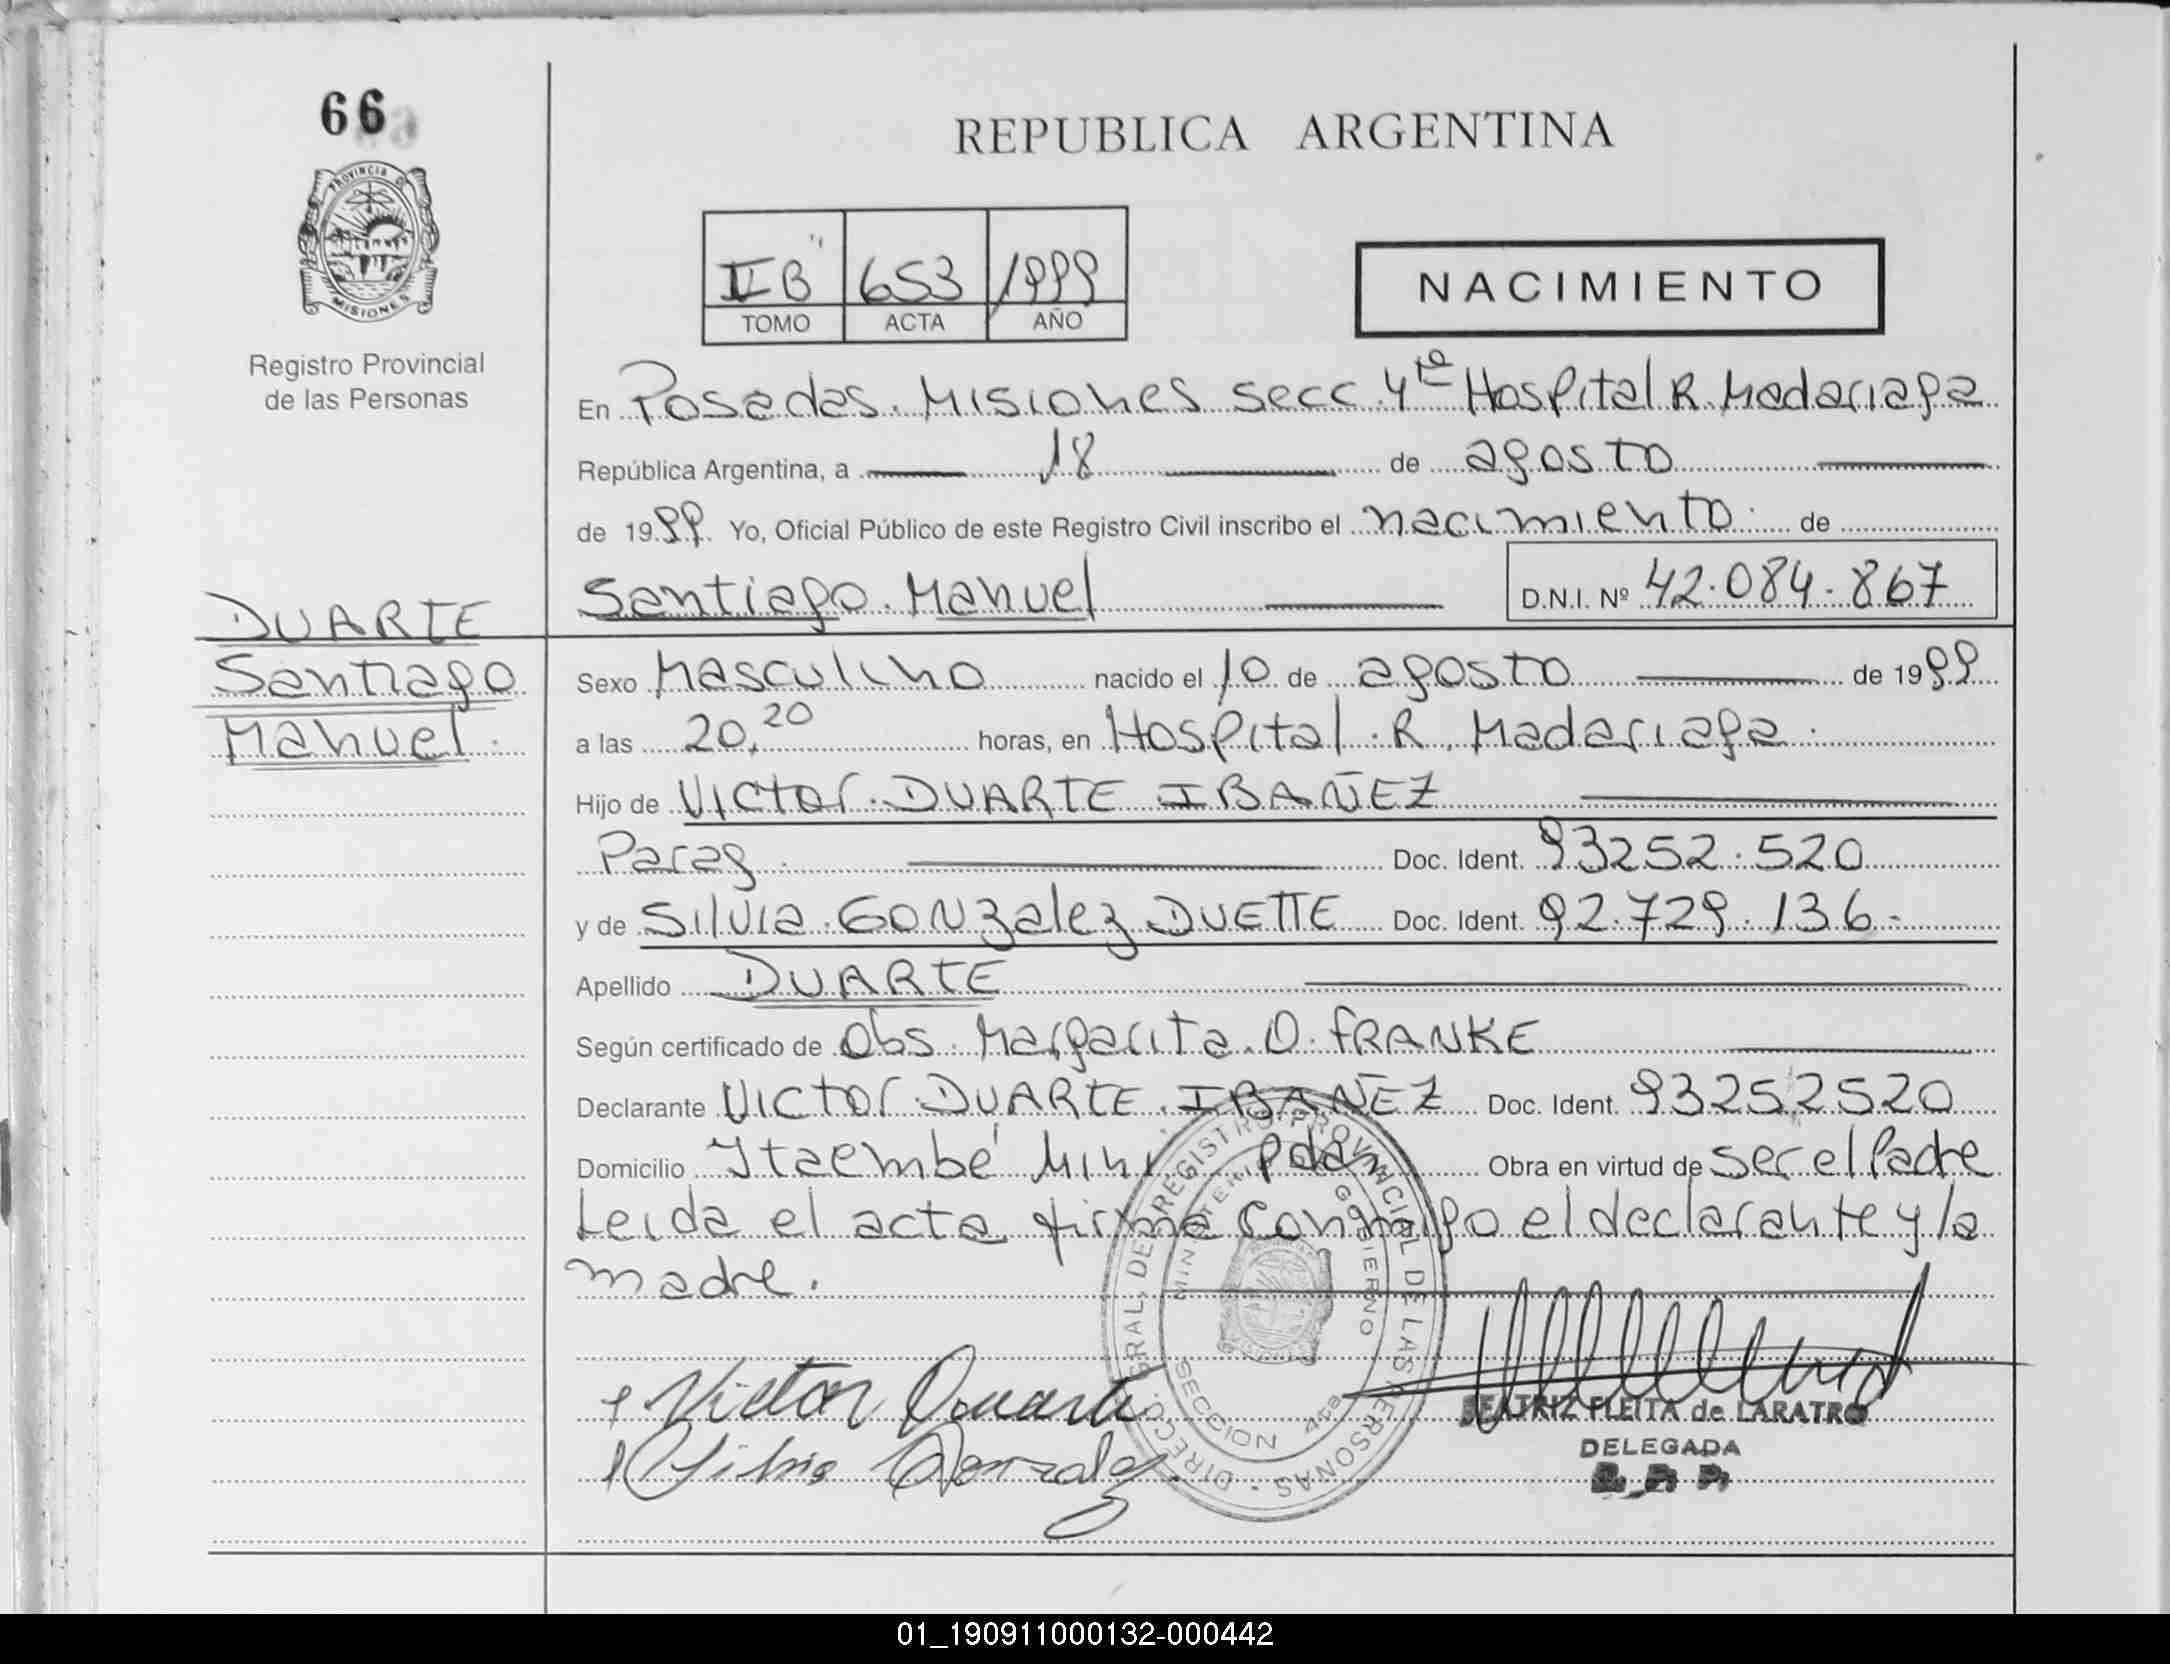 66
REPUBLICA ARGENTINA
PROVINCIA D
MISIONES
Registro Provincial
de las Personas
II B 653 1999
TOMO ACTA AÑO
NACIMIENTO
En Posadas. Misiones secc. 4ta Hospital R. Madariaga
República Argentina, a 18 de agosto
de 1999. Yo, Oficial Público de este Registro Civil inscribo el nacimiento. de
Santiago. Manuel D.N.I. Nº 42.084.867
DUARTE
Santiago
Manuel.
Sexo Masculino nacido el 10 de agosto de 1999
a las 20,20 horas, en Hospital. R. Madariaga.
Hijo de Victor. DUARTE IBAÑEZ
Parag. Doc. Ident. 93252.520
y de Silvia. GONzalez DUETTE Doc. Ident. 92.729.136.-
Apellido DUARTE
Según certificado de Obs. Margarita. O. FRANKE
Declarante Victor. DUARTE. IBAÑEZ Doc. Ident. 93252520
Domicilio Itaembé Mini Pdas Obra en virtud de ser el Padre
Leida el acta firma conmigo el declarante y la
madre.
DIRECC. GRAL. DEL REGISTRO PROVINCIAL DE LAS PERSONAS
MINISTERIO DE GOBIERNO
SECCION 4ta
Victor Duarte
Silvia Gonzalez
BEATRIZ FLEITA de LARATRO
DELEGADA
01_190911000132-000442